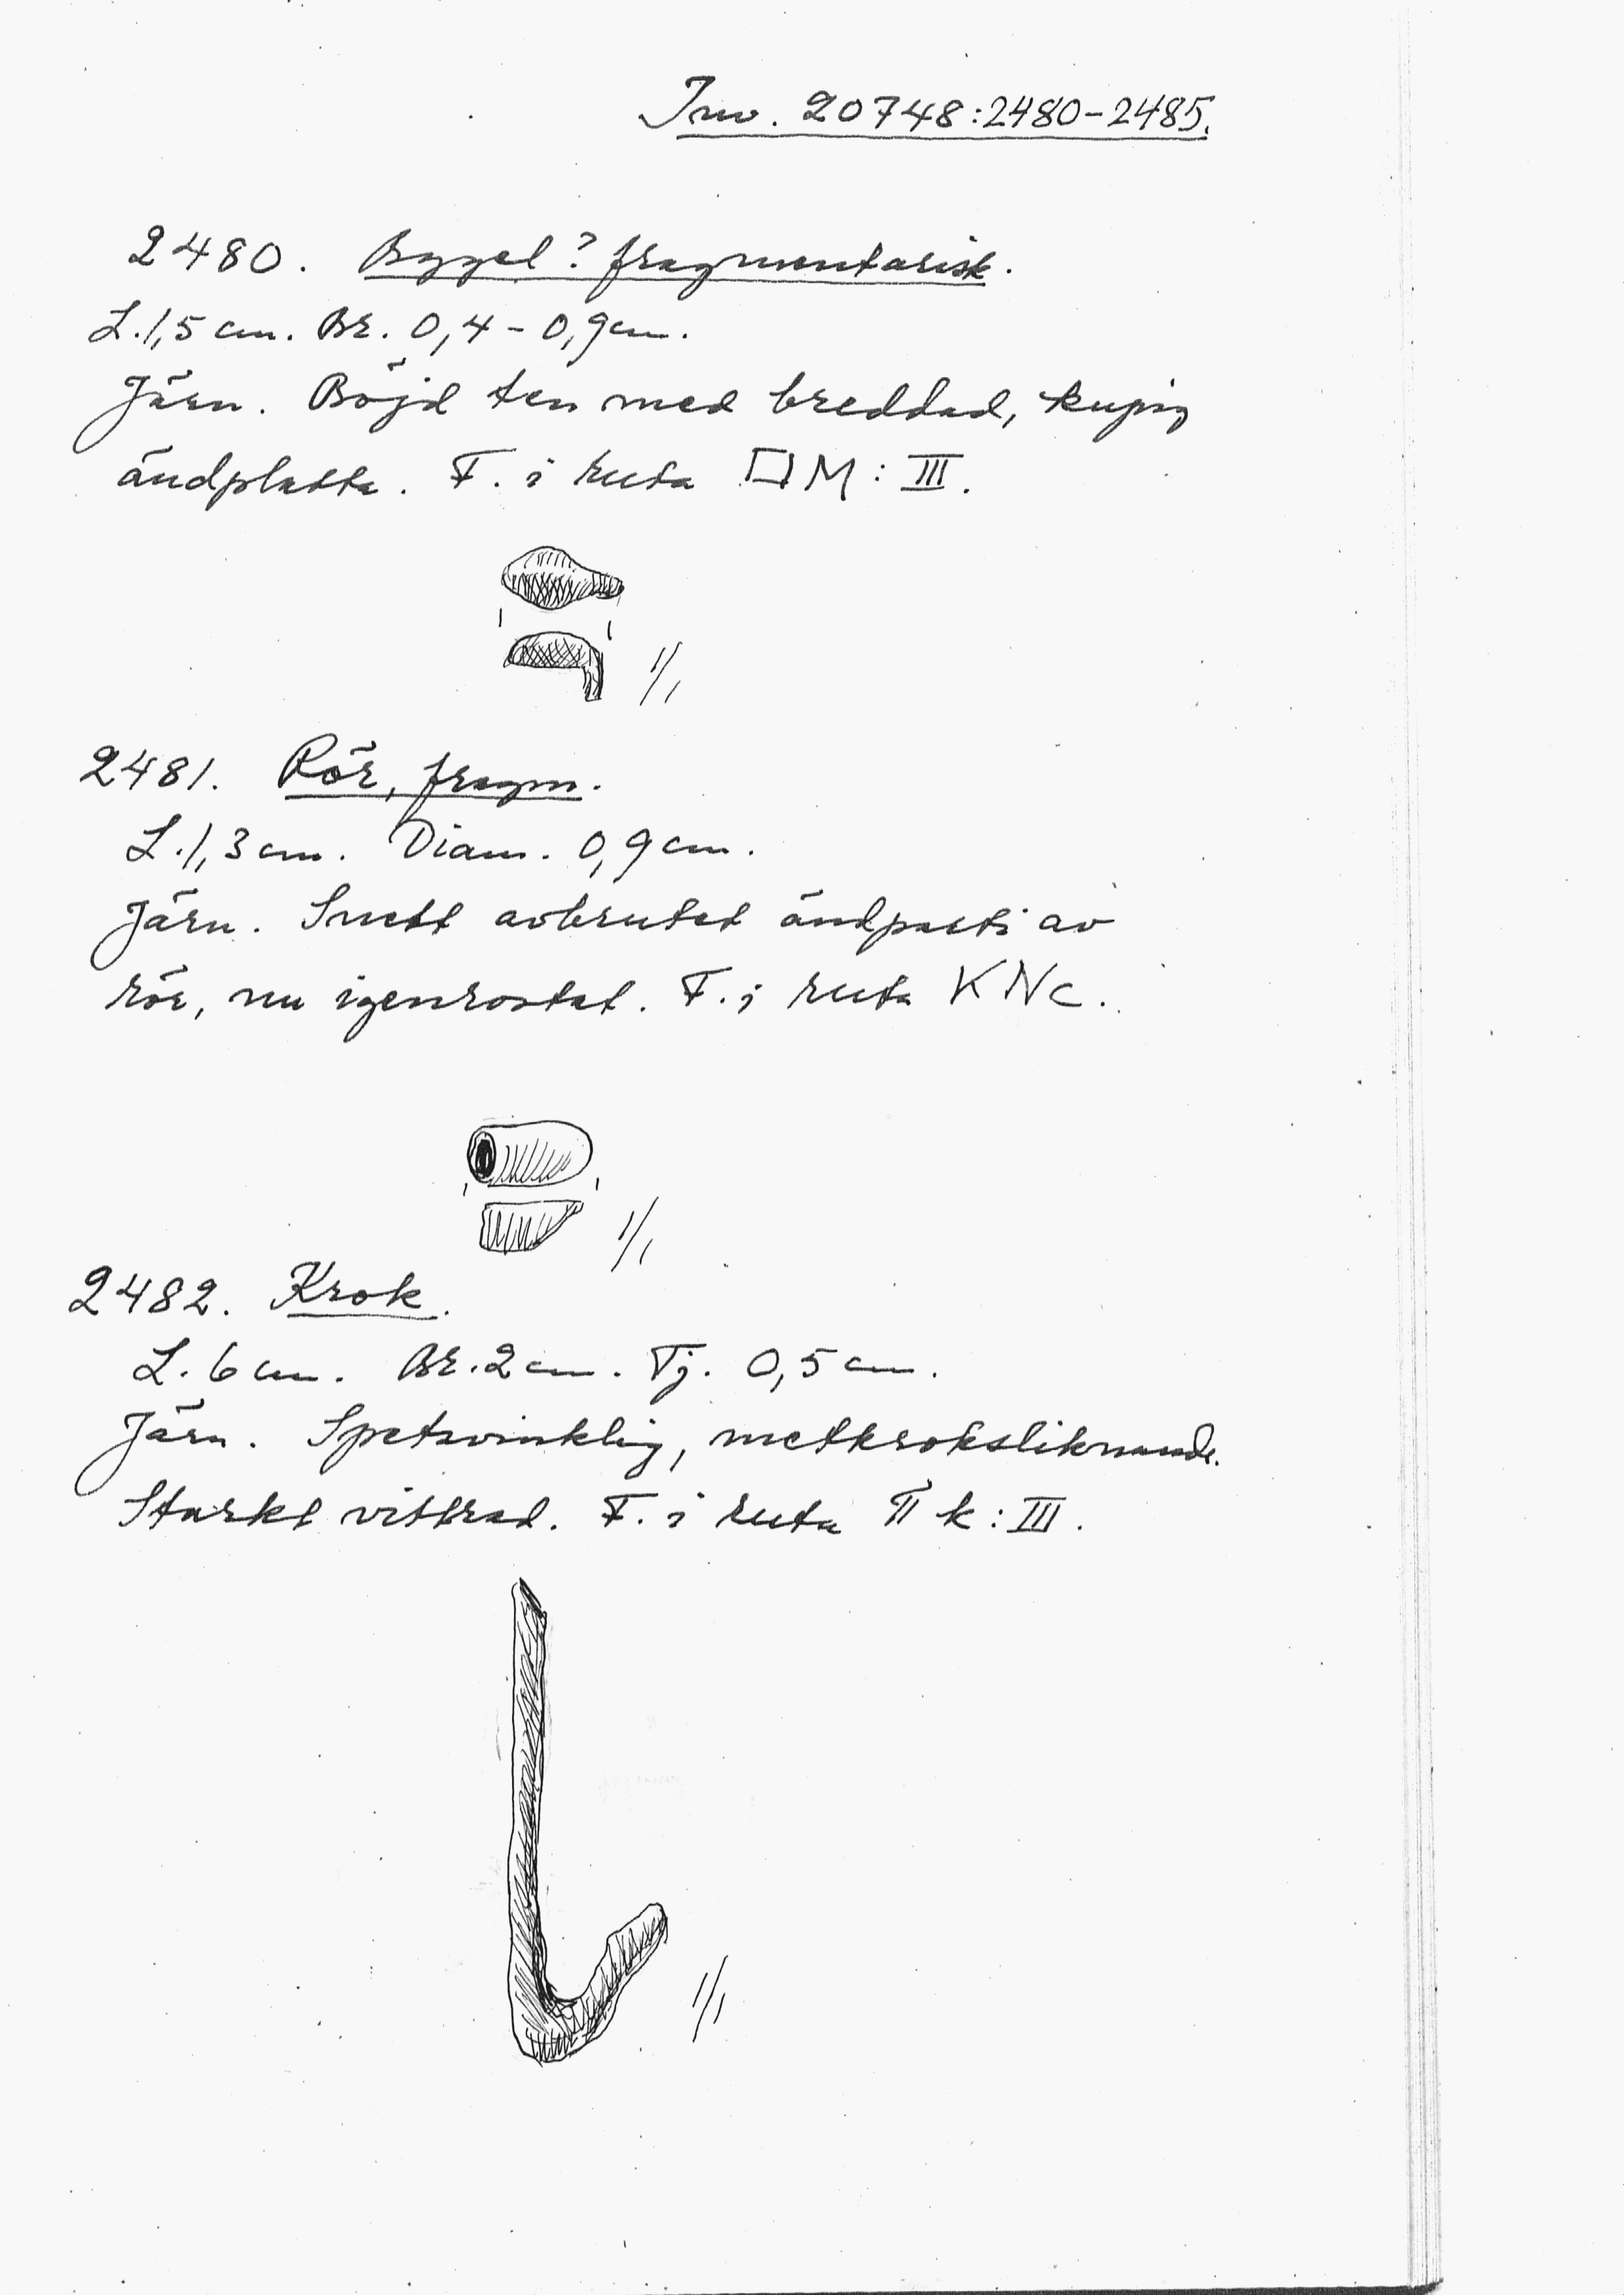 Inv. 20748:2480-2485.
2480. Bygel? fragmentarisk.
L. 1,5 cm. Br. 0,4-0,9 cm.
Järn. Böjd ten med breddad, kupig
ändplatta. F. i ruta □ M: III.
1/1
2481. Rör, fragm.
L. 1,3 cm. Diam. 0,9 cm.
Järn. Snett avbrutet ändparti av
rör, nu igenrostat. F. i ruta KNc.
1/1
2482. Krok.
L. 6 cm. Br. 2 cm. Tj. 0,5 cm.
Järn. Spetsvinklig, metkroksliknande.
Starkt vittrad. F. i ruta k: III.
1/1